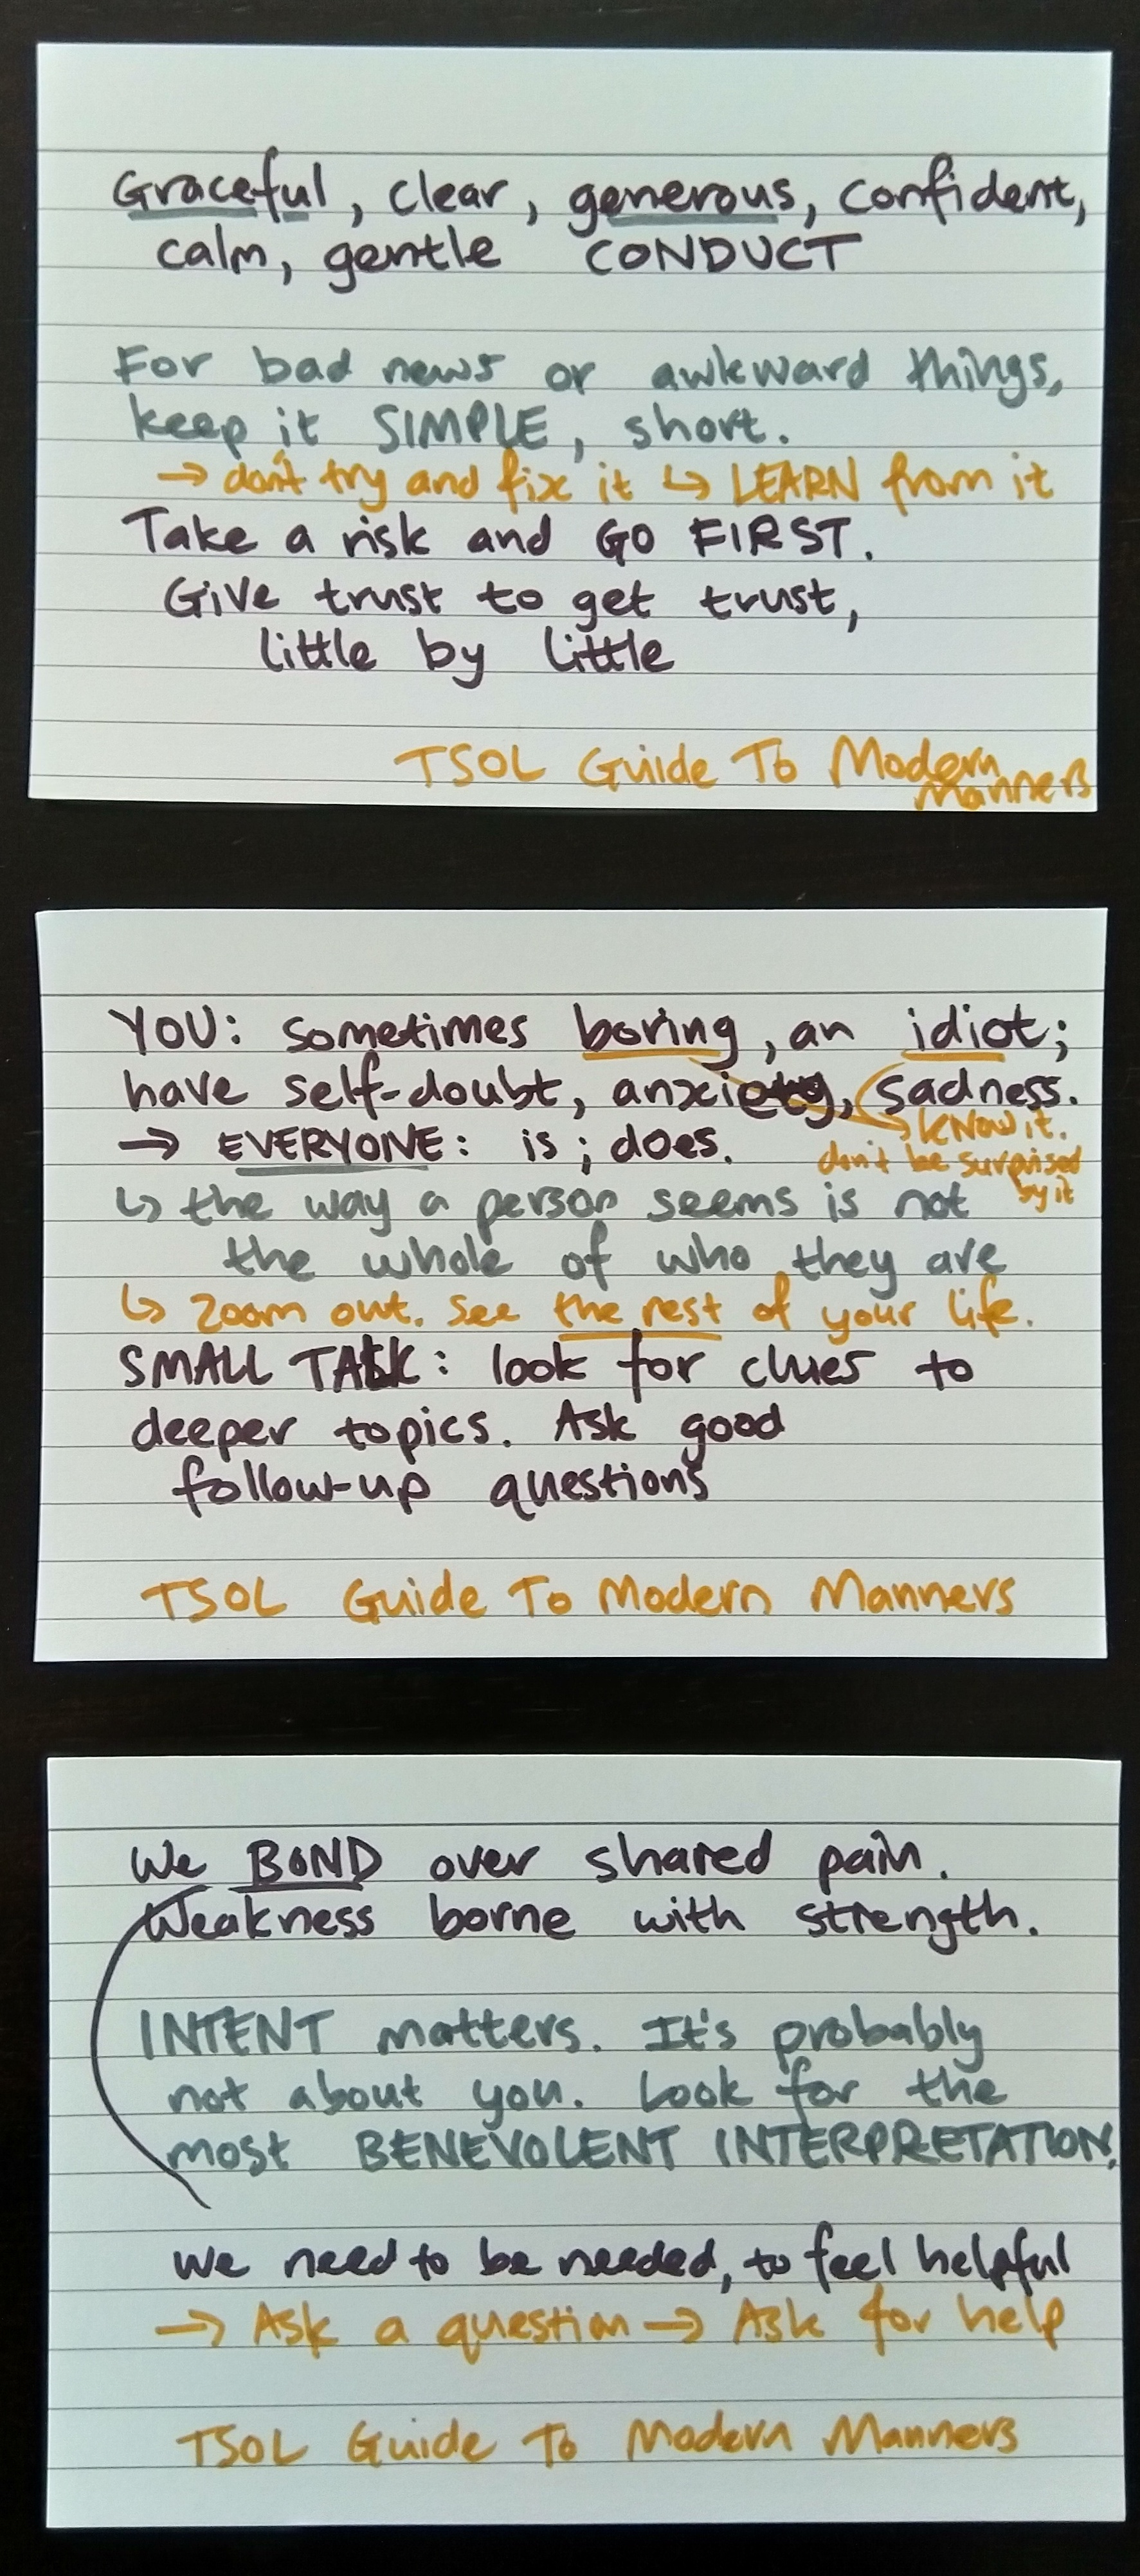 Graceful, clear, generous, confident,
calm, gentle CONDUCT
For bad news or awkward things,
keep it SIMPLE, short.
→ don't try and fix it ↳ LEARN from it
Take a risk and GO FIRST.
Give trust to get trust,
little by little
TSOL Guide To Modern
Manners
YOU: sometimes boring, an idiot;
have self-doubt, anxiety, sadness.
→ KNOW it.
→ EVERYONE: is; does.
don't be surprised
by it
↳ the way a person seems is not
the whole of who they are
↳ Zoom out. See the rest of your life.
SMALL TALK: look for clues to
deeper topics. Ask good
follow-up questions
TSOL Guide To Modern Manners
We BOND over shared pain.
Weakness borne with strength.
INTENT matters. It's probably
not about you. Look for the
most BENEVOLENT INTERPRETATION.
We need to be needed, to feel helpful
→ Ask a question → Ask for help
TSOL Guide To Modern Manners